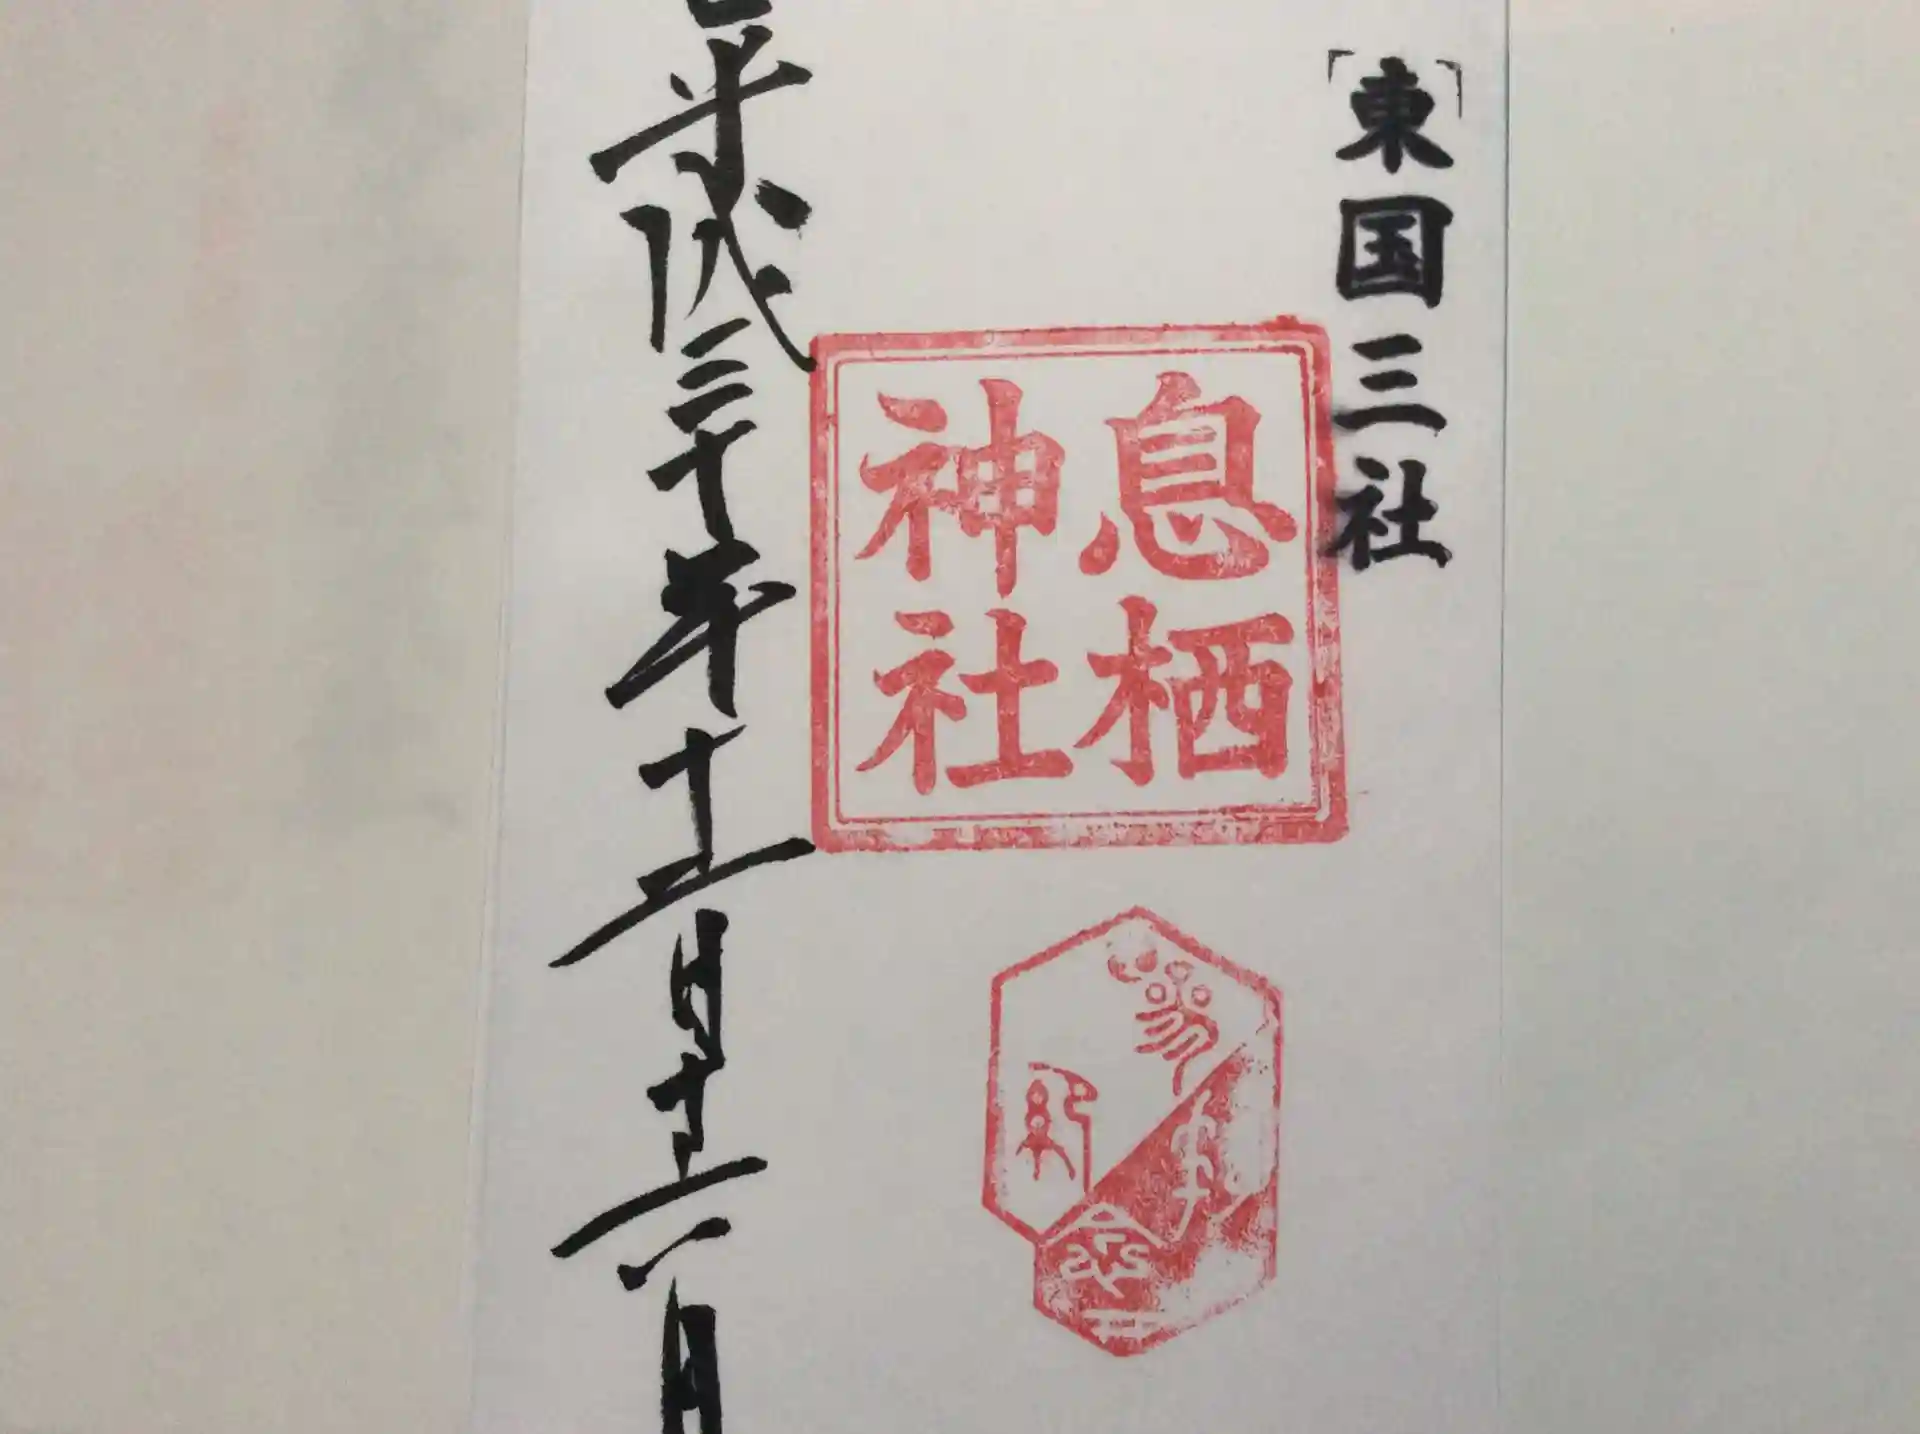 東国三社
息栖
神社
参拝
平成三十年十二月十六日